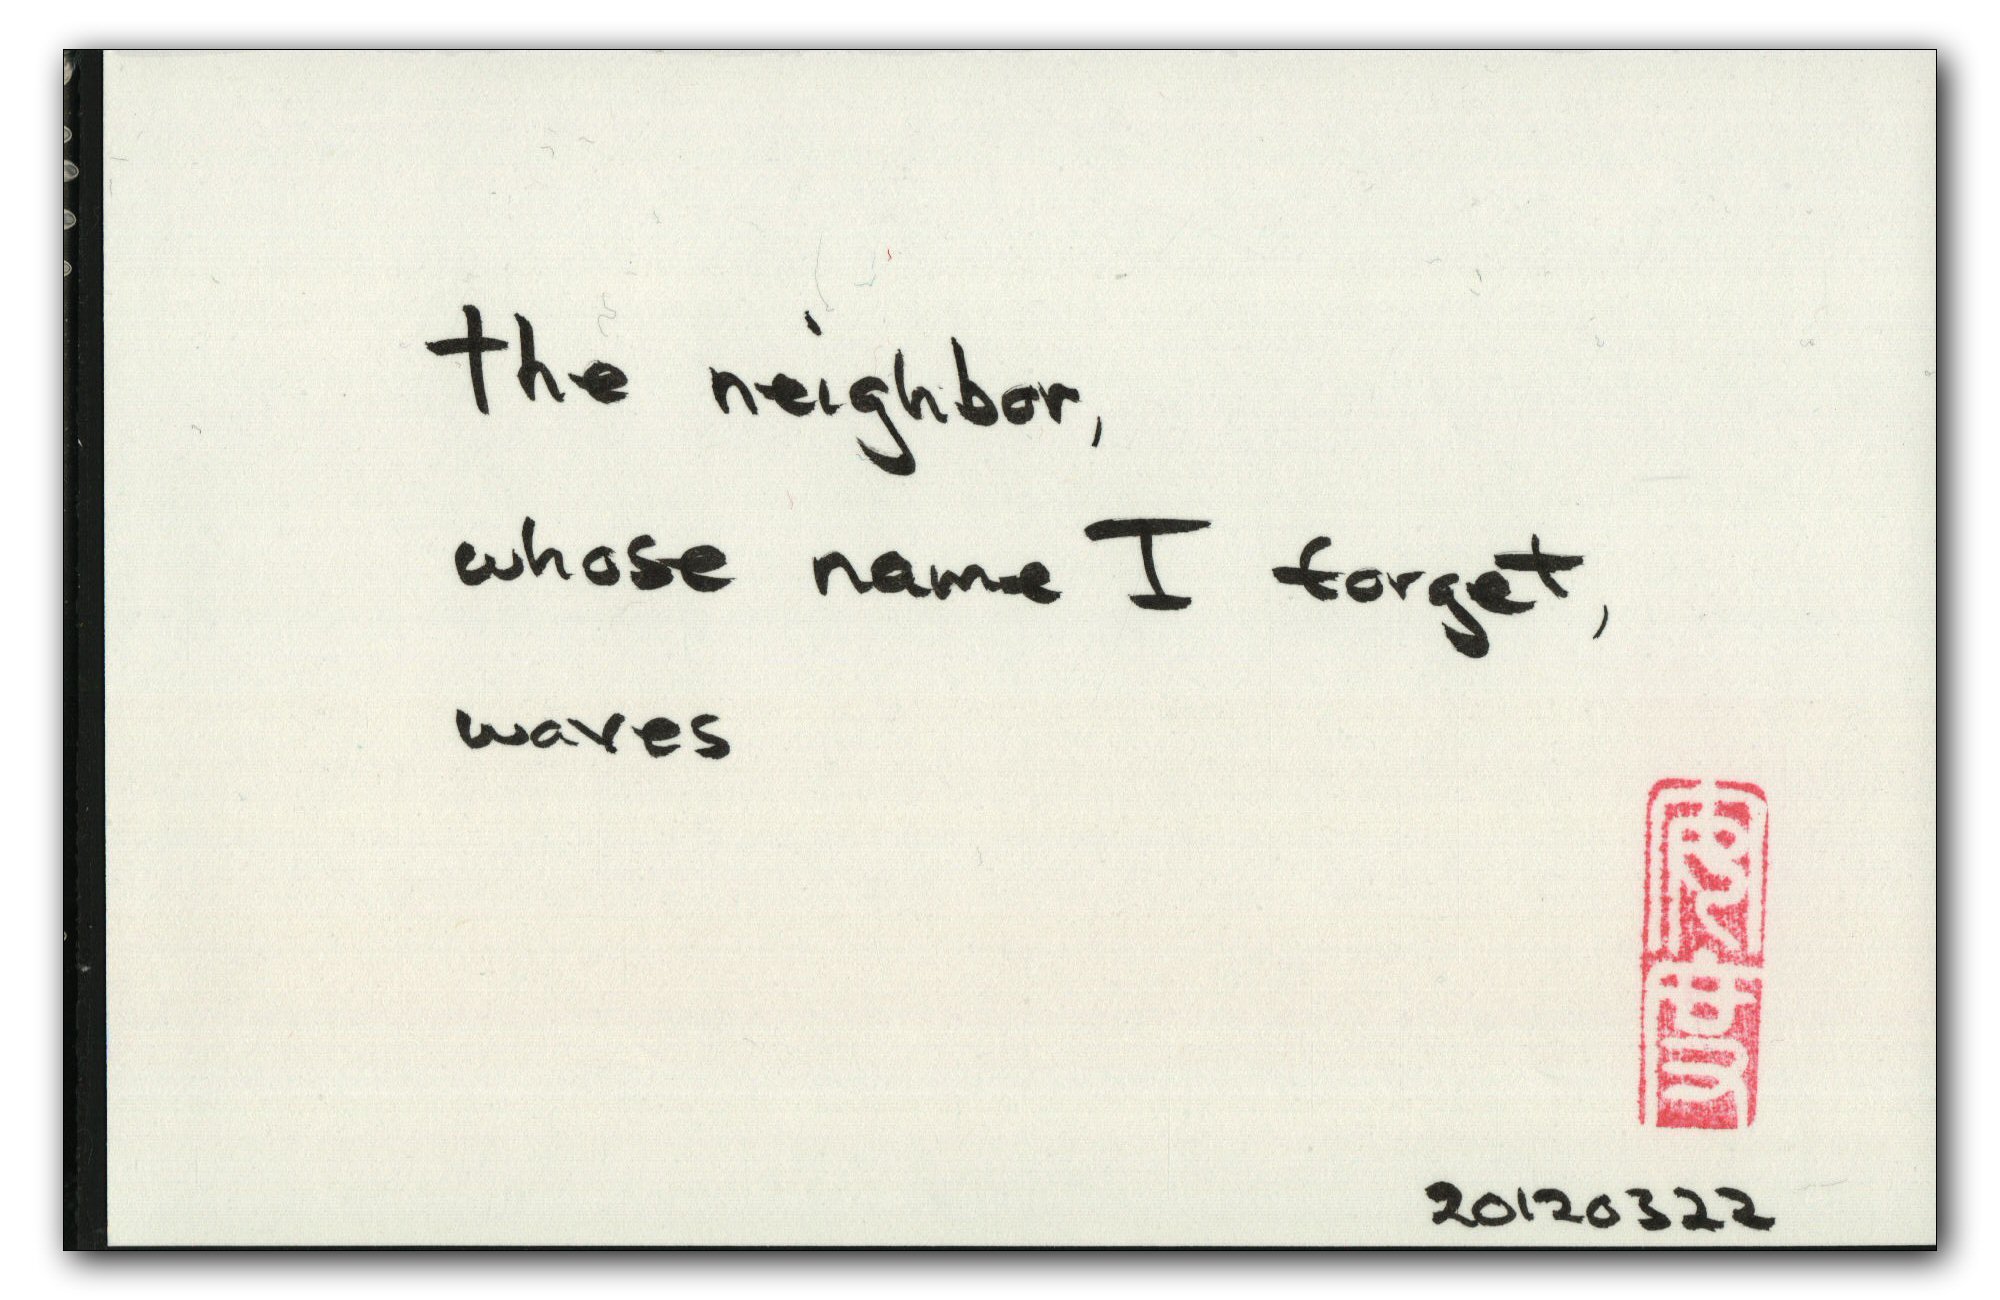 the neighbor,
whose name I forget,
waves
20120322